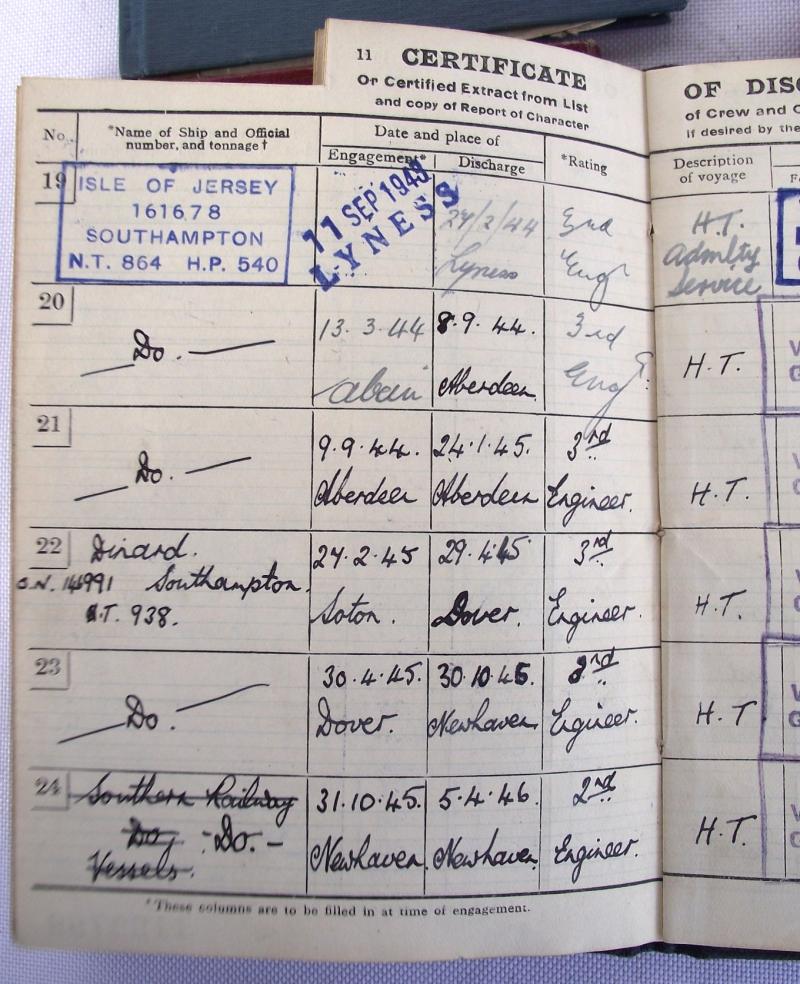 11 CERTIFICATE
Or Certified Extract from List
and copy of Report of Character
OF DISC
of Crew and O
if desired by the
No.
*Name of Ship and Official
number, and tonnage †
Date and place of
Engagement*
Discharge
*Rating
Description
of voyage
19
ISLE OF JERSEY
161678
SOUTHAMPTON
N.T. 864 H.P. 540
11 SEP 1943
LYNESS
24/2/44
Lyness
Engr
H.T.
Admlty
Service
20
Do.
13.3.44
8.9.44.
Aberdeen
3rd
Eng
H.T.
21
Do.
9.9.44.
Aberdeen
24.1.45.
Aberdeen
3rd
Engineer.
H.T.
22
Dinard.
Southampton.
N.T. 938.
Soton.
Dover.
3rd
Engineer.
H.T.
23
Do.
30.4.45.
Dover.
30.10.45.
Newhaven
Engineer.
H.T
24
Southern Railway
Do, -Do.-
Vessels.
31.10.45.
Newhaven.
5.4.46.
Newhaven.
2nd
Engineer.
H.T.
*These columns are to be filled in at time of engagement.